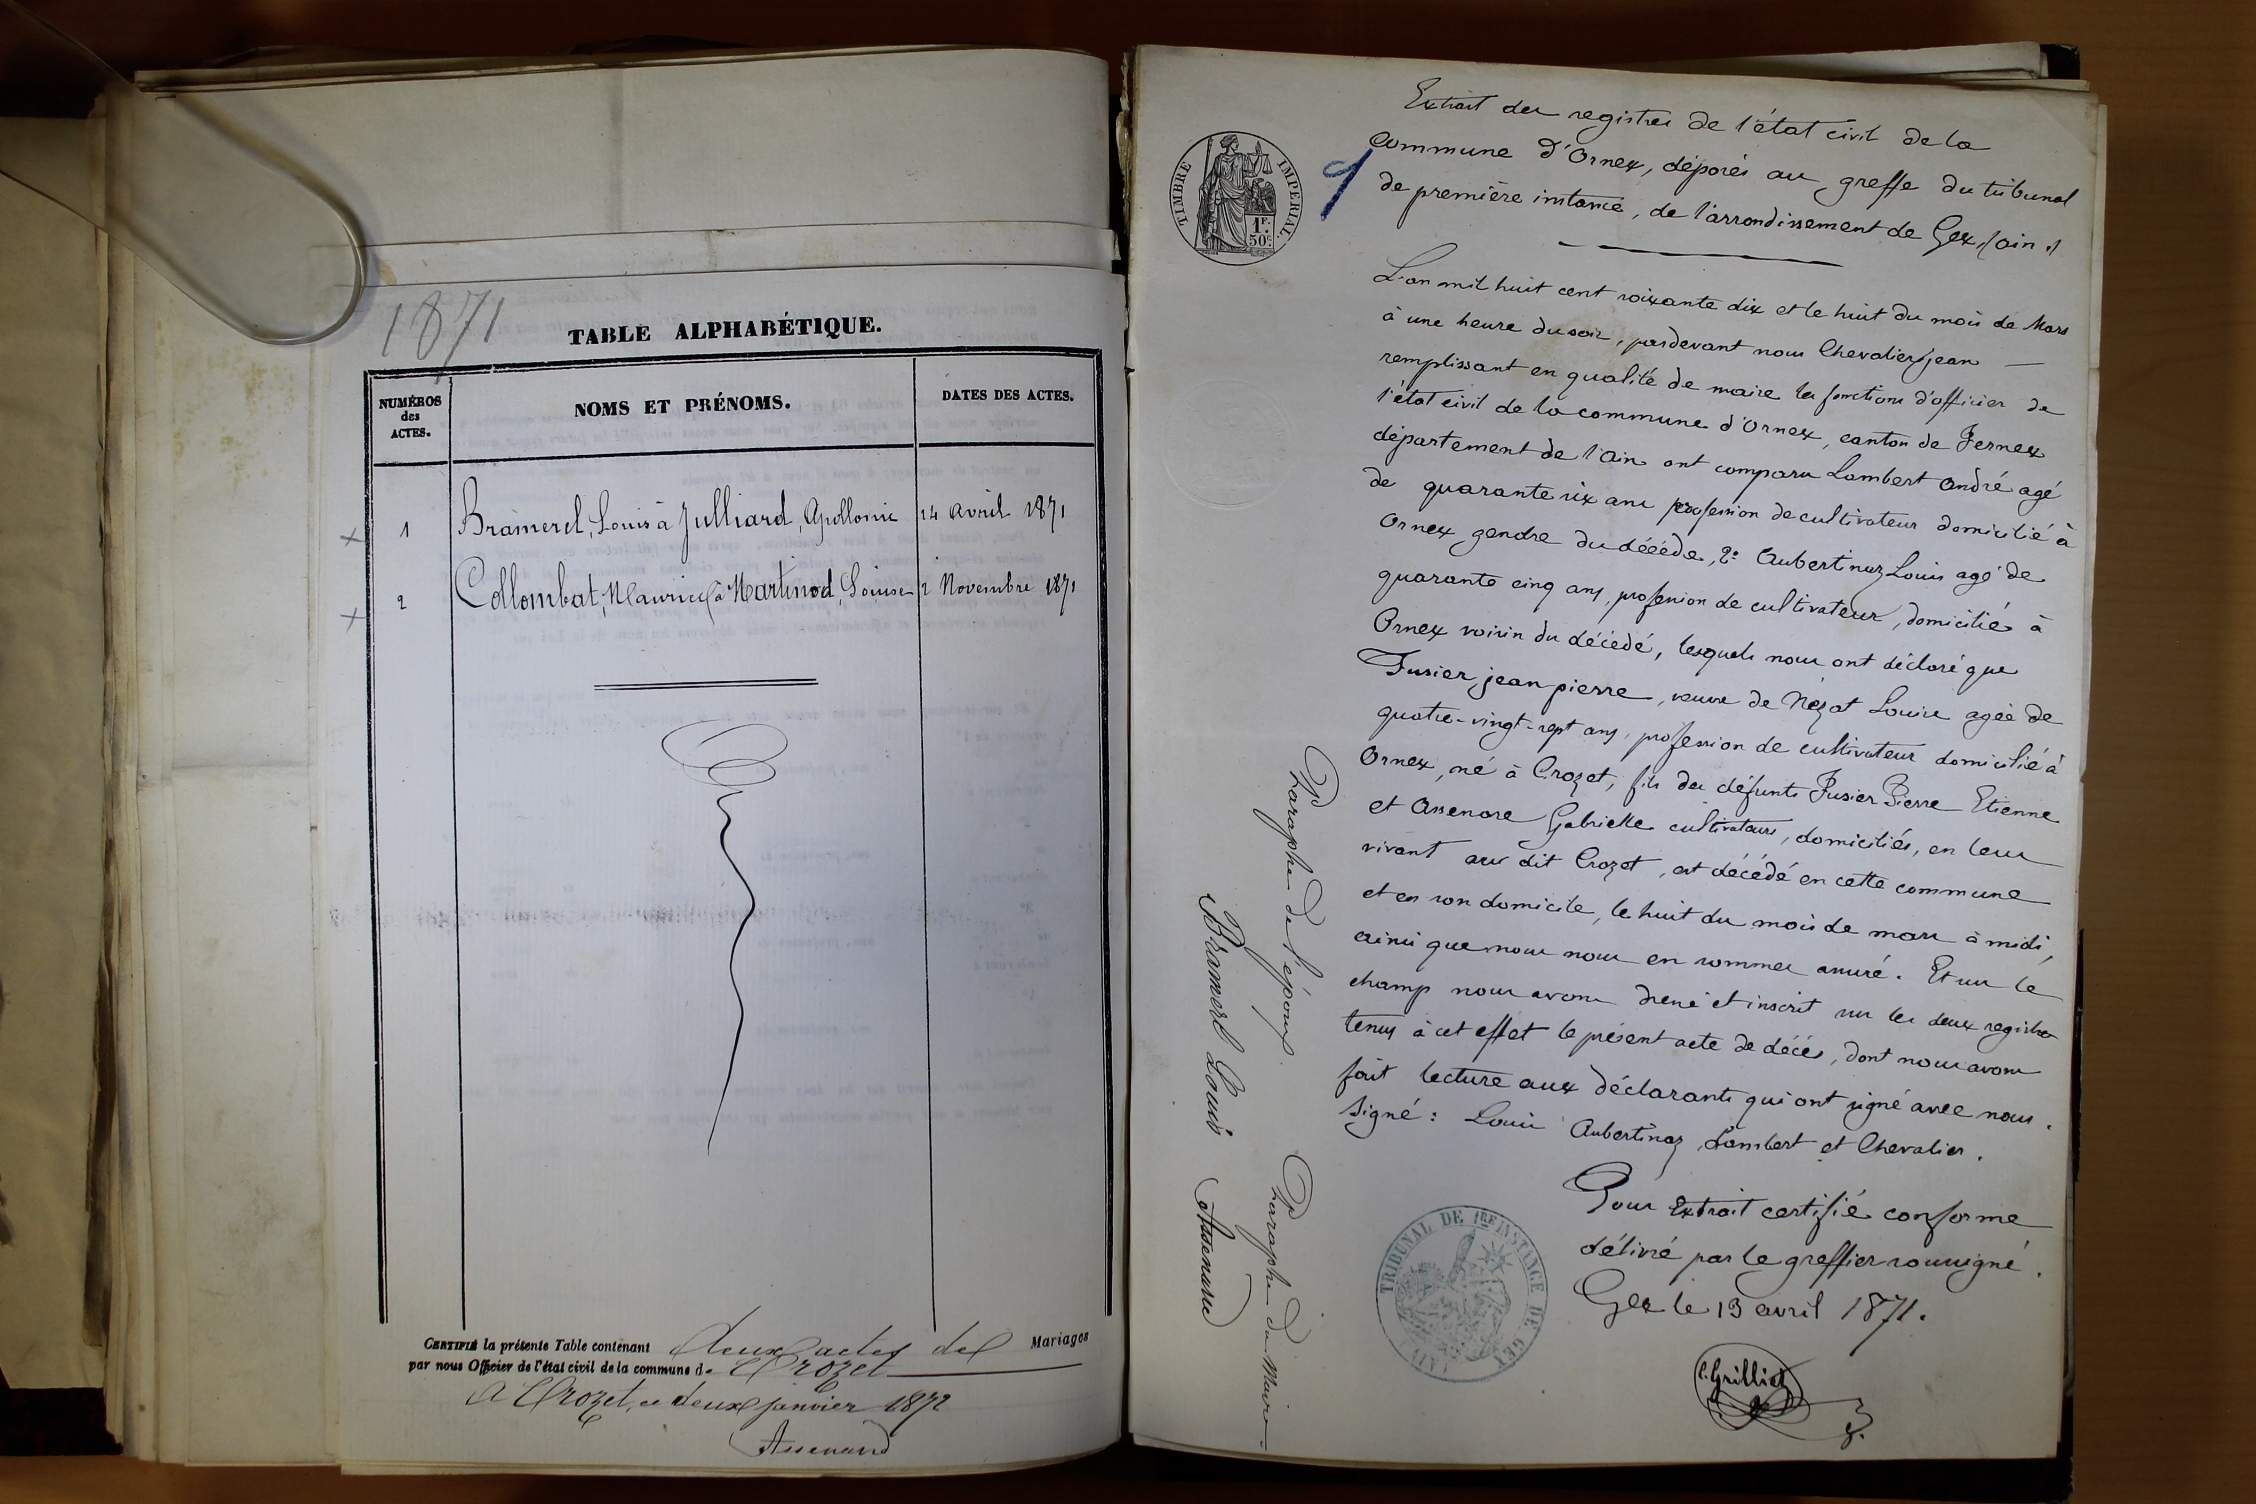 1871
TABLE ALPHABÉTIQUE.
NUMÉROS
des
ACTES.
NOMS ET PRÉNOMS.
DATES DES ACTES.
1 Bramerel, Louis à Julliard, Apollonie 24 avril 1871
2 Collombat, Maurice à Martinod, Louise 2 Novembre 1871
CERTIFIÉ la présente Table contenant deux actes de Mariages
par nous Officier de l'état civil de la commune de Crozet
A Crozet, ce deux janvier 1872
Assenard
TIMBRE IMPERIAL.
1F.
50c.
Extrait des registres de l'état civil de la
commune d'Ornex, déposés au greffe du tribunal
de première instance, de l'arrondissement de Gex, (ain)
L'an mil huit cent soixante dix et le huit du mois de Mars
à une heure du soir, pardevant nous Chevalier, jean
remplissant en qualité de maire les fonctions d'officier de
l'état civil de la commune d'Ornex, canton de Fernex
département de l'ain ont comparu Lambert andré agé
de quarante six ans profession de cultivateur domicilié à
Ornex gendre du décédé, 2° Aubertinaz Louis agé de
quarante cinq ans, profession de cultivateur, domicilié à
Ornex voisin du décédé, lesquels nous ont déclaré que
Fusier, jean pierre, veuve de Nézat Louise agée de
quatre-vingt-sept ans, profession de cultivateur domicilié à
Ornex, né à Crozet, fils des défunts Fusier Pierre Etienne
et Assenare Gabrielle cultivateurs, domiciliés, en leur
vivant au dit Crozet, est décédé en cette commune
et en son domicile, le huit du mois de mars à midi,
ainsi que nous nous en sommes assuré. Et sur le
champ nous avons dressé et inscrit sur les deux registres
tenus à cet effet le présent acte de décès, dont nous avons
fait lecture aux déclarants qui ont signé avec nous.
Signé : Louis Aubertinaz, Lambert et Chevalier.
Pour Extrait certifié conforme
délivré par le greffier soussigné.
Gex le 13 avril 1871.
C. Grilliet
TRIBUNAL DE 1RE INSTANCE DE GEX (AIN)
Paraphe de l'époux.
Bramerel Louis
Paraphe du Maire
Assenard